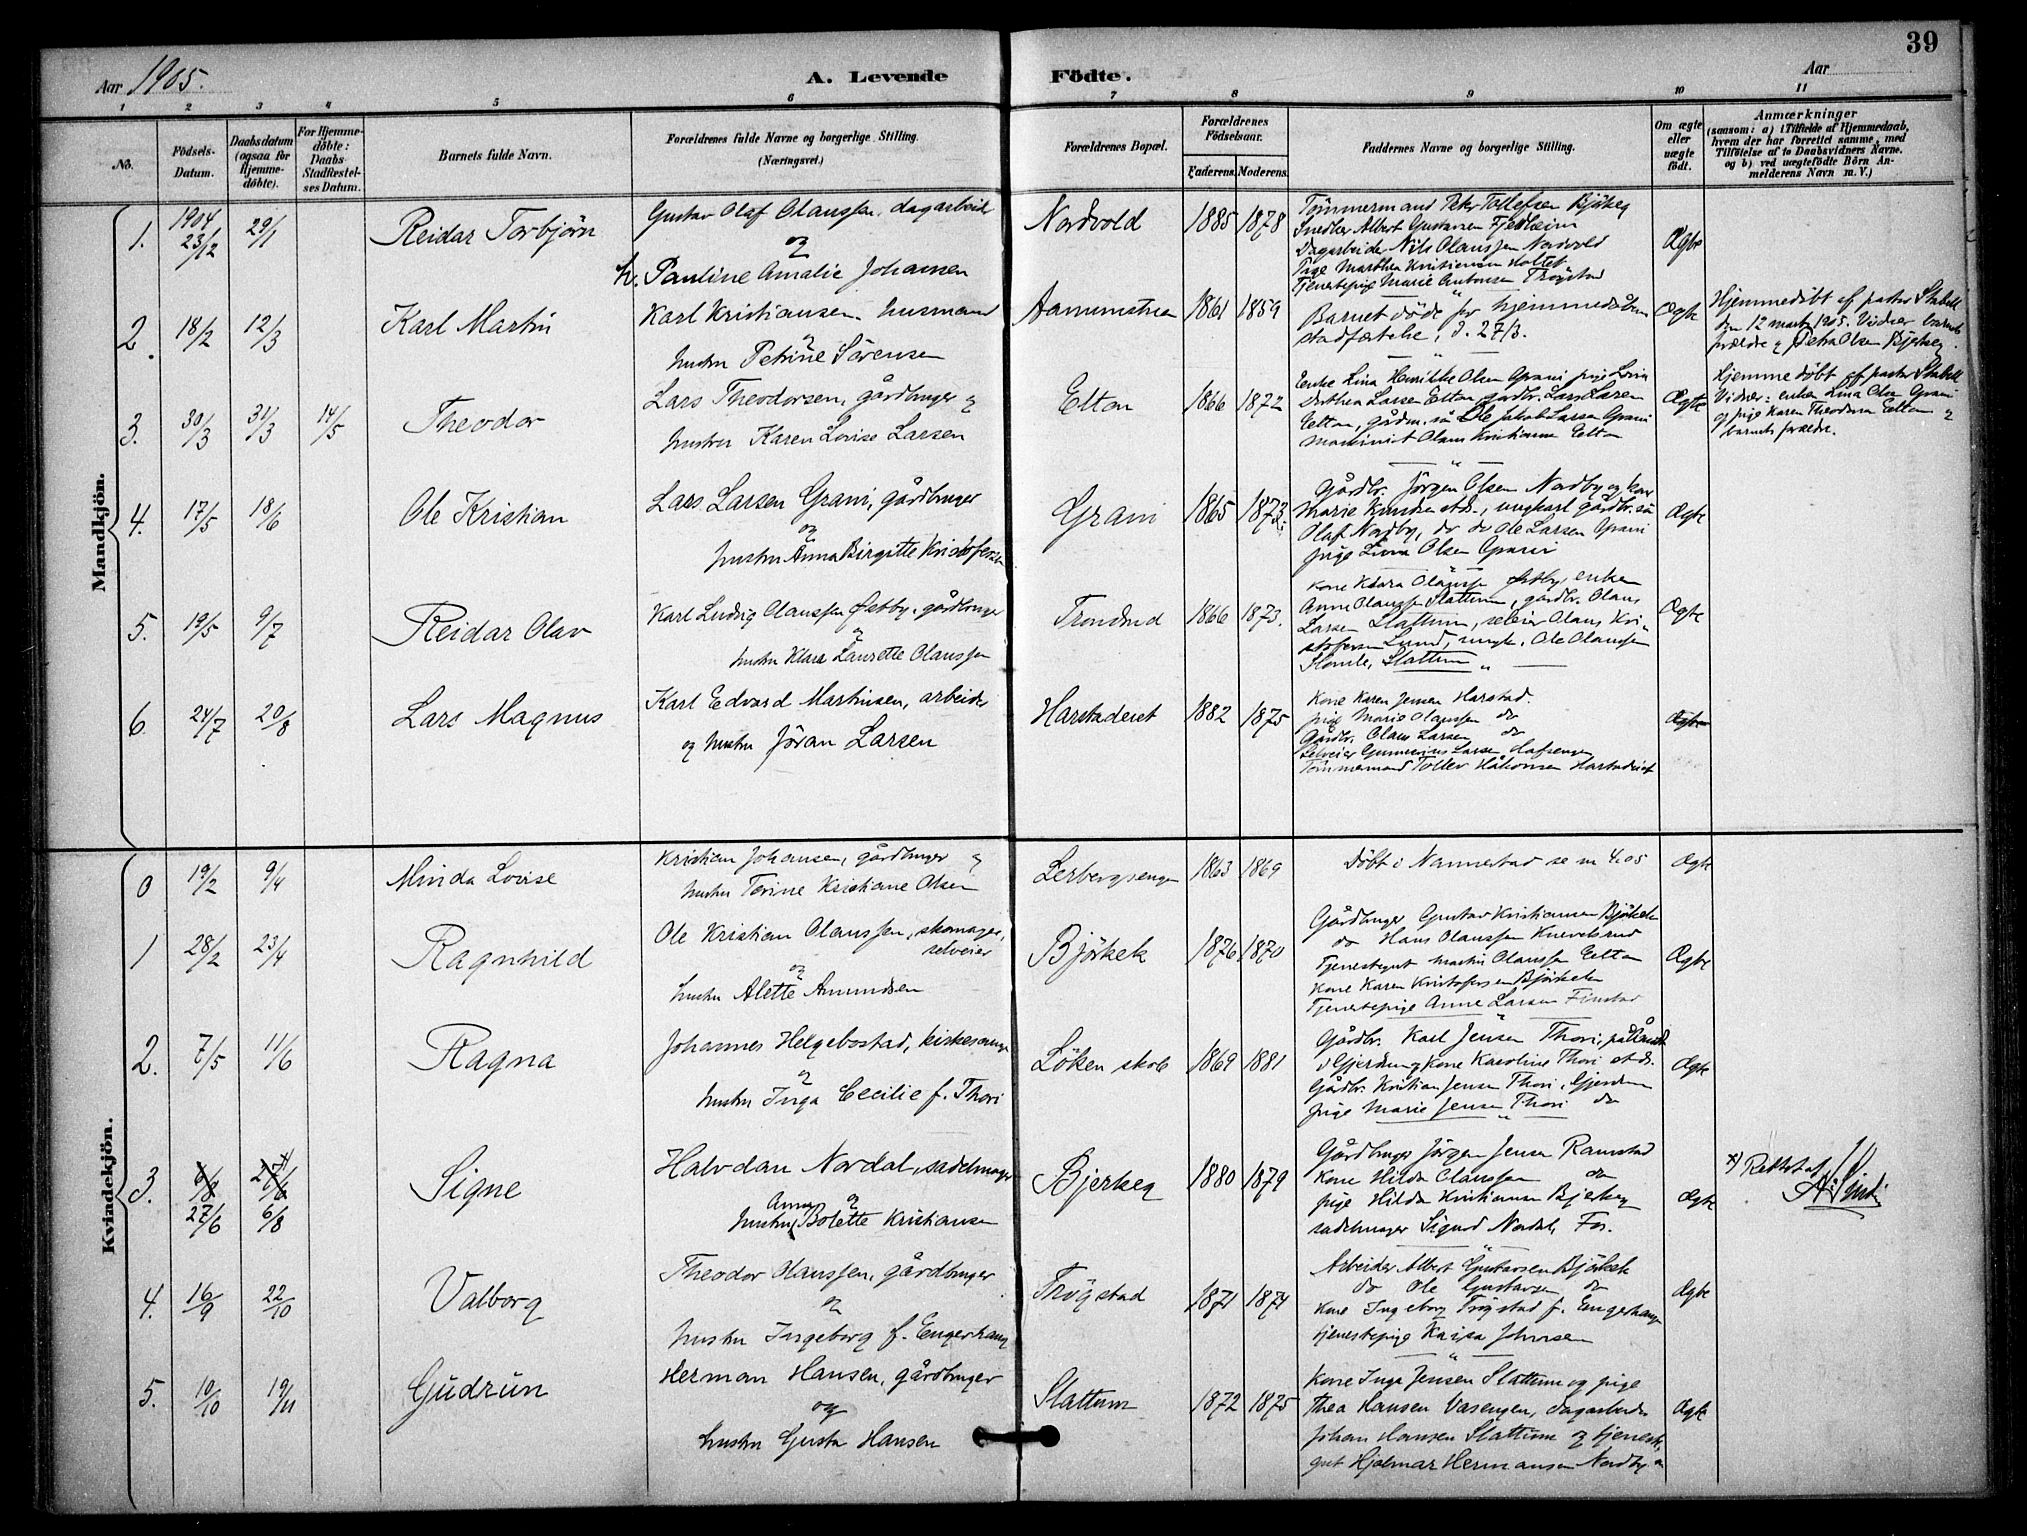 39
Aar 1905.
A. Levende Födte.
Aar
1 2 3 4 5 6 7 8 9 10 11
No.
Födsels-Datum.
Daabsdatum (ogsaa for Hjemmedöbte).
For Hjemmedöbte: Daabs Stadfestelses Datum.
Barnets fulde Navn.
Forældrenes fulde Navne og borgerlige Stilling. (Næringsvei.)
Forældrenes Bopæl.
Forældrenes Födselsaar.
Faderens. Moderens.
Faddernes Navne og borgerlige Stilling.
Om ægte eller uægte födt.
Anmærkninger
(saasom: a) i Tilfælde af Hjemmedaab, hvem der har forrettet samme, med Tilföielse af to Daabsvidners Navne. og b) ved uægtefödte Börn Anmelderens Navn m. V.)
Mandkjön.
1. 1904 23/12 29/1 Reidar Torbjörn
Gustav Olaf Olaussen, dagarbeider
og
h. Pauline Amalie Johansen
Nordvold 1885 1878
Tömmermand Peter Tollefsen Bjerkeg
Snedker Albert Gustavsen Fjeldheim
Dagarbeider Nils Olaussen Nordvold
Pige Marthea Kristiansen Holtet
Tjenestepige Marie Antonsen Trögstad
Ægte
2. 18/2 12/3 Karl Martin
Karl Kristiansen, husmand
og
hustru Petrine Sörensen
1861 1859
Barnet döde før hjemmedåbens
stadfæstelse, d. 27/3.
Ægte
Hjemmedöbt af pastor Stabell
den 12 marts 1905. Vidner barnets
forældre og Petra Olsen Bjerkeg.
3. 30/3 31/3 14/5 Theodor
Lars Theodorsen, gårdbruger og
hustru Karen Lovise Larsen
Elton 1866 1872
Enke Lina Henrikke Olsen Grani pige Lovise
Dorthea Larsen Elton, gårdbr. Lars Larsen
Elton, gårdm. sön Ole Jakob Larsen Grani
Maskinist Olaus Kristiansen Elton
Ægte
Hjemmedöbt af pastor Stabell
Vidner: enken Lina Olsen Grani
og pige Karen Theodora Elton og
barnets forældre.
4. 17/5 18/6 Ole Kristian
Lars Larsen Grani, gårdbruger
og
hustru Anna Birgitte Kristofersen
Grani 1865 1873.
Gårdbr. Jörgen Olsen Nordby og kone
Marie Knudsen stds., ungkarl gårdbr. sön
Olaf Nordby, do do Ole Larsen Grani
pige Lina Olsen Grani
Ægte
5. 19/5 9/7 Reidar Olav
Karl Ludvig Olaussen Østby, gårdbruger
og
hustru Klara Laurette Olaussen
Trondrud 1866 1873.
Kone Klara Olaussen Østby, enken
Anne Olaussen Slattum, gårdbr. Olaus
Larsen Slattum, seleier Olaus Kri-
stofersen Lund, ungk. Ole Olaussen
Homle, Slattum
Ægte
6 24/7 20/8 Lars Magnus
Karl Edvard Martinsen, arbeider
og hustru Jöran Larsen
Harstaderet 1882 1875
Kone Karen Jensen Harstad.
pige Marie Olaussen do
Gårdbr. Olaus Larsen do
Selveier Gunnerius Larsen Hafsengen
Tömmermand Tollev Håkonsen Harstaderet
Ægte
Kvindekjön.
0 19/2 9/4 Minda Lovise
Kristian Johansen, gårdbruger og
hustru Torine Kristiane Olsen
Lerbergsengen 1863 1869
Döbt i Nannestad se nr 4. 05
Ægte
1 28/2 23/4 Ragnhild
Ole Kristian Olaussen, skomager,
selveier
og
hustru Alette Amundsen
Bjökek 1876 1870
Gårdbruger Gustav Kristiansen Bjökek
do Hans Olaussen Knevelsrud
Tjenestegut Martin Olaussen Elton
Kone Karen Kristofersen Bjökek
Tjenestepige Anne Larsen Finstad
Ægte
2. 7/5 11/6 Ragna
Johannes Helgebostad, kirkesanger
og
hustru Inga Cecilie f. Thori
Löken skole 1869 1881
Gårdbr. Karl Jensen Thori,
i Gjerdrum og kone Karoline Thori stds.
Gårdbr. Kristian Jensen Thori, Gjerdrum
pige Marie Jensen Thori do
Ægte
3. 6/8 27/6 27/6 6/8 Signe
Halvdan Nordal, sadelmager
og
hustru Anna Bolette Kristiansen
Bjerkeg 1880 1879
Gårdbruger Jörgen Jensen Ramstad
Kone Hilda Olaussen do
pige Hilda Kristiansen Bjerkeg
sadelmager Sigurd Nordal, Far.
Ægte
x) Rettet
4. 16/9 22/10 Valborg
Theodor Olaussen, gårdbruger
og
hustru Ingeborg f. Engerhaug
Trögstad 1871 1871
Arbeider Albert Gustavsen Bjökek
do Ole Gustavsen do
Kone Ingeborg Trögstad f. Engerhaugen
tjenestepige Kaisa Johnsen
Ægte
5. 10/10 19/11 Gudrun
Herman Hansen, gårdbruger
og
hustru Gusta Hansen
Slattum 1872 1875
Kone Inga Jensen Slattum og pige
Thea Hansen Vasengen, dagarbeider
Johan Hansen Slattum og tjeneste-
gut Hjalmar Hermansen Nordby
Ægte